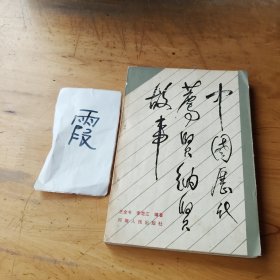 霞
中国历代
荐贤纳贤
故事
编著
河南人民出版社